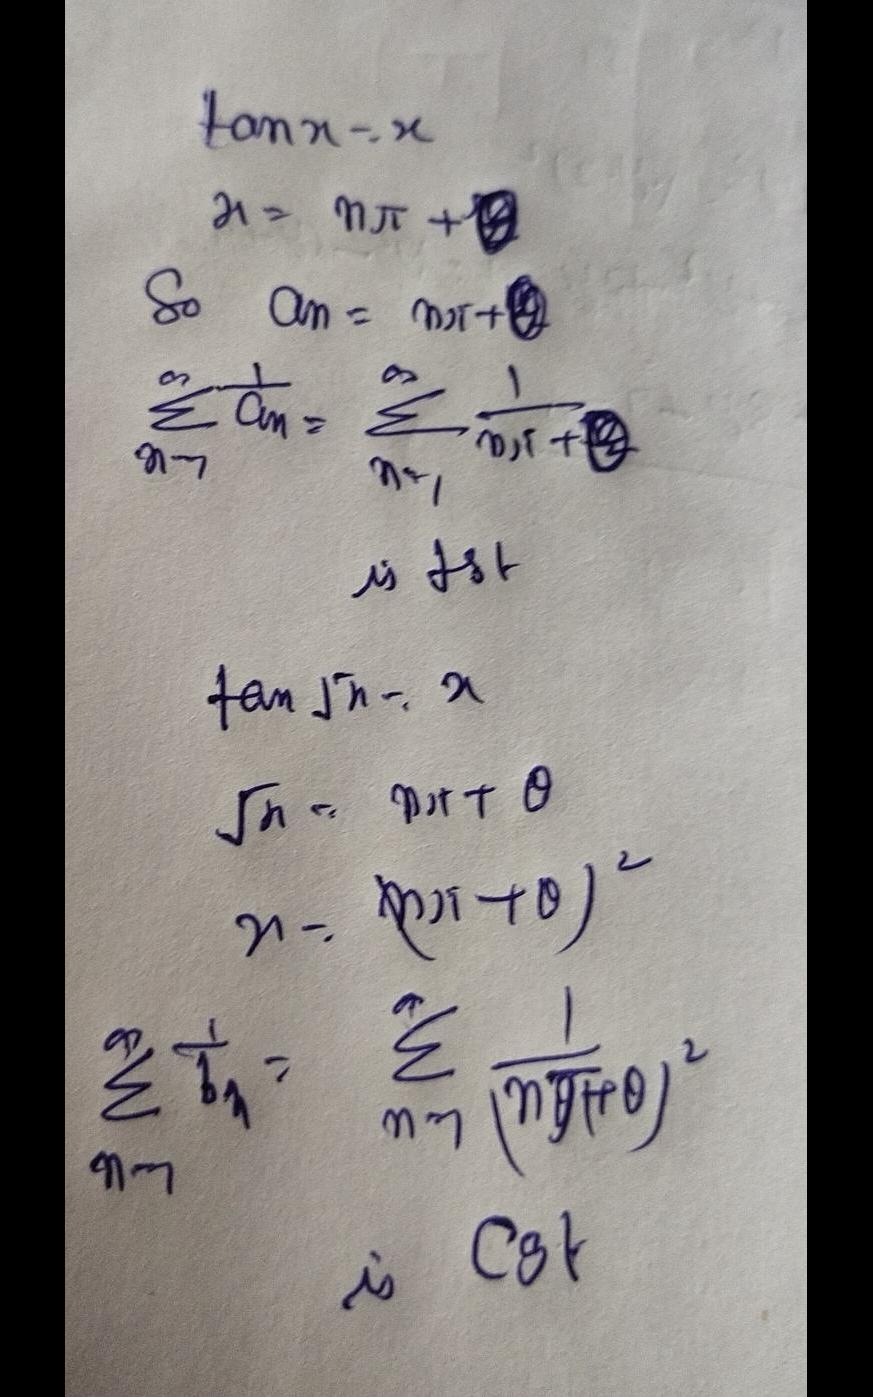 tan x = x
x = nπ + θ
So an = nπ + θ
∞ Σ n=1 1/an = ∞ Σ n=1 1/(nπ + θ)
is dgt
tan √x = x
√x = nπ + θ
x = (nπ + θ)²
∞ Σ n=1 1/bn = ∞ Σ n=1 1/(nπ + θ)²
is Cgt